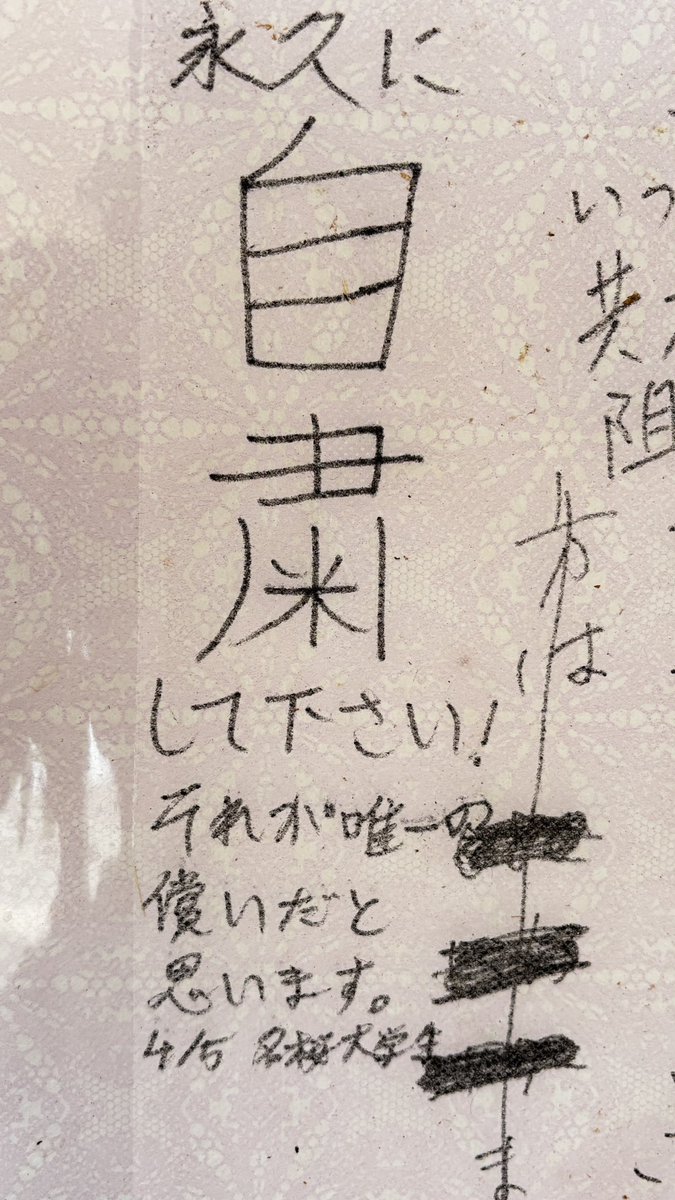 永久に
自
粛
して下さい!
それが唯一の
償いだと
思います。
4/5 名桜大学生
いつ
共
阻
方は
ま